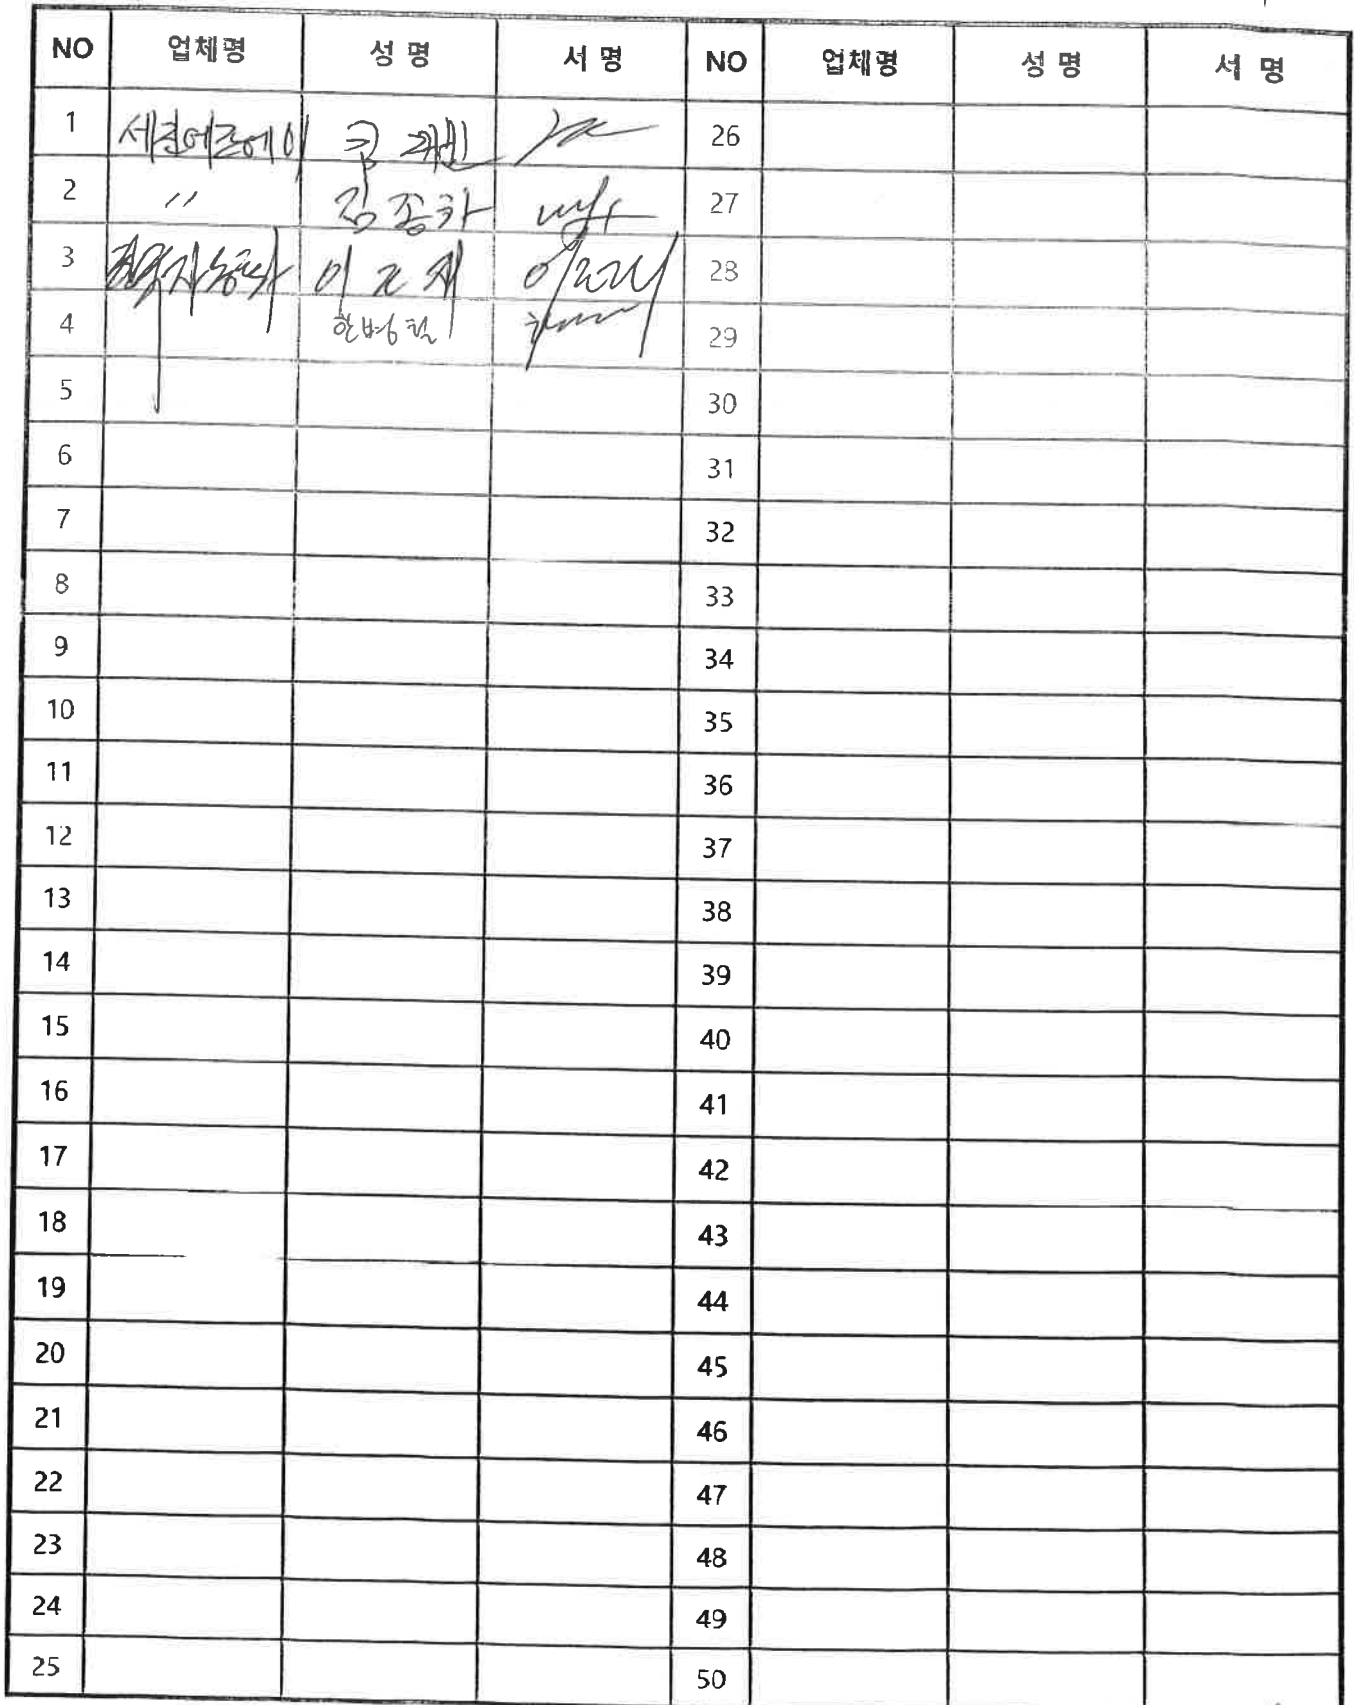 NO 업체명 성 명 서 명 NO 업체명 성 명 서 명
1 26
2 〃 김종하 27
3 28
4 한병철 29
5 30
6 31
7 32
8 33
9 34
10 35
11 36
12 37
13 38
14 39
15 40
16 41
17 42
18 43
19 44
20 45
21 46
22 47
23 48
24 49
25 50